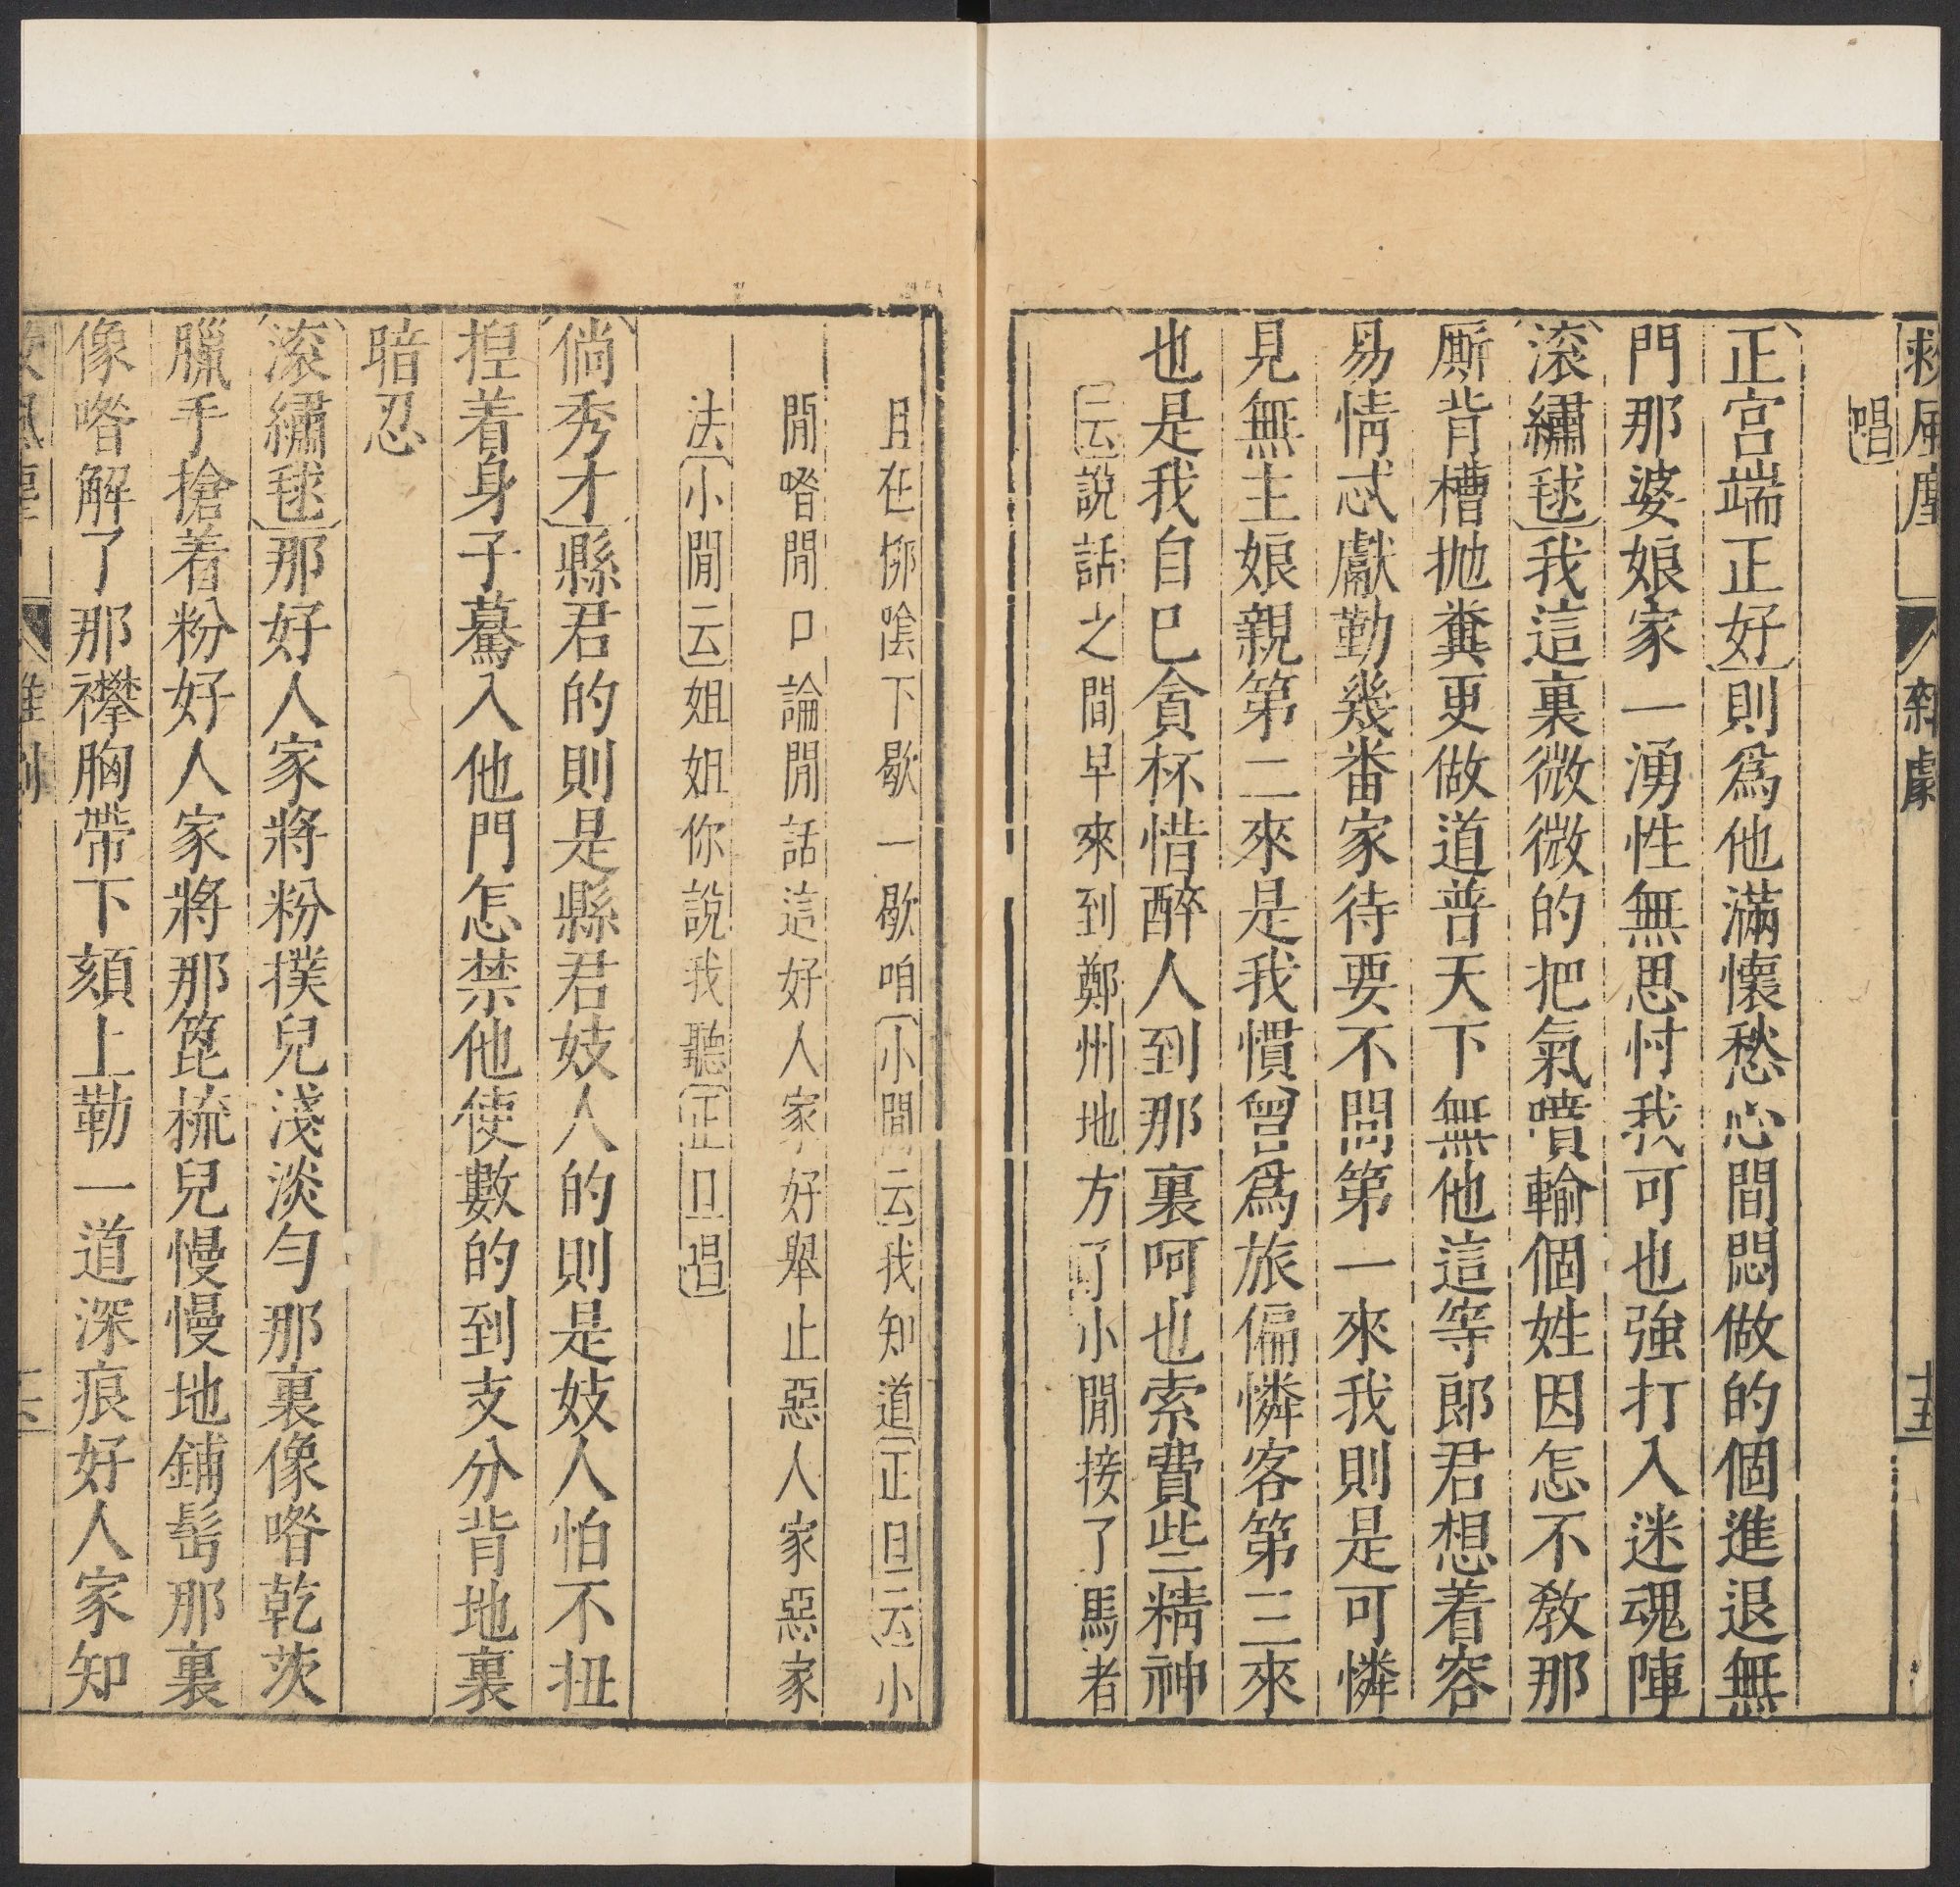 救風塵 雜劇 十五
唱
正宮端正好則爲他滿懷愁心間悶做的個進退無
門那婆娘家一湧性無思忖我可也強打入迷魂陣
滚繡毬我這裏微微的把氣噴輸個姓因怎不敎那
厮背槽抛糞更做道普天下無他這等郎君想着容
易情忒獻勤幾番家待要不問第一來我則是可憐
見無主娘親第二來是我慣曾爲旅偏憐客第三來
也是我自己貪杯惜醉人到那裏呵也索費些精神
云說話之間早來到鄭州地方了小閒接了馬者
且在栁陰下歇一歇咱小閒云我知道正旦云小
閒喒閒口論閒話這好人家好舉止惡人家惡家
法小閒云姐姐你說我聽正旦唱
倘秀才縣君的則是縣君妓人的則是妓人怕不扭
揑着身子驀入他門怎禁他使數的到支分背地裏
暗忍
滚繡毬那好人家將粉撲兒淺淡勻那裏像喒乾茨
臘手搶着粉好人家將那篦梳兒慢慢地鋪髩那裏
像喒解了那襻胸帶下頦上勒一道深痕好人家知